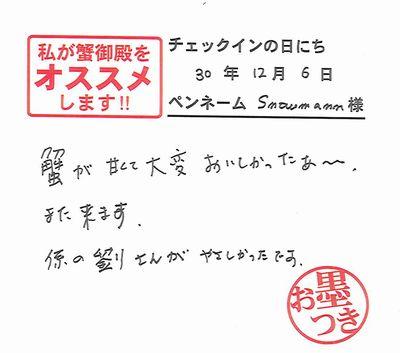 私が蟹御殿を
オススメ
します!!
チェックインの日にち
30 年 12 月 6 日
ペンネーム Snowmann 様
蟹が甘くて大変おいしかったなぁ〜.
また来ます.
係の劉さんがやさしかったです.
お墨つき